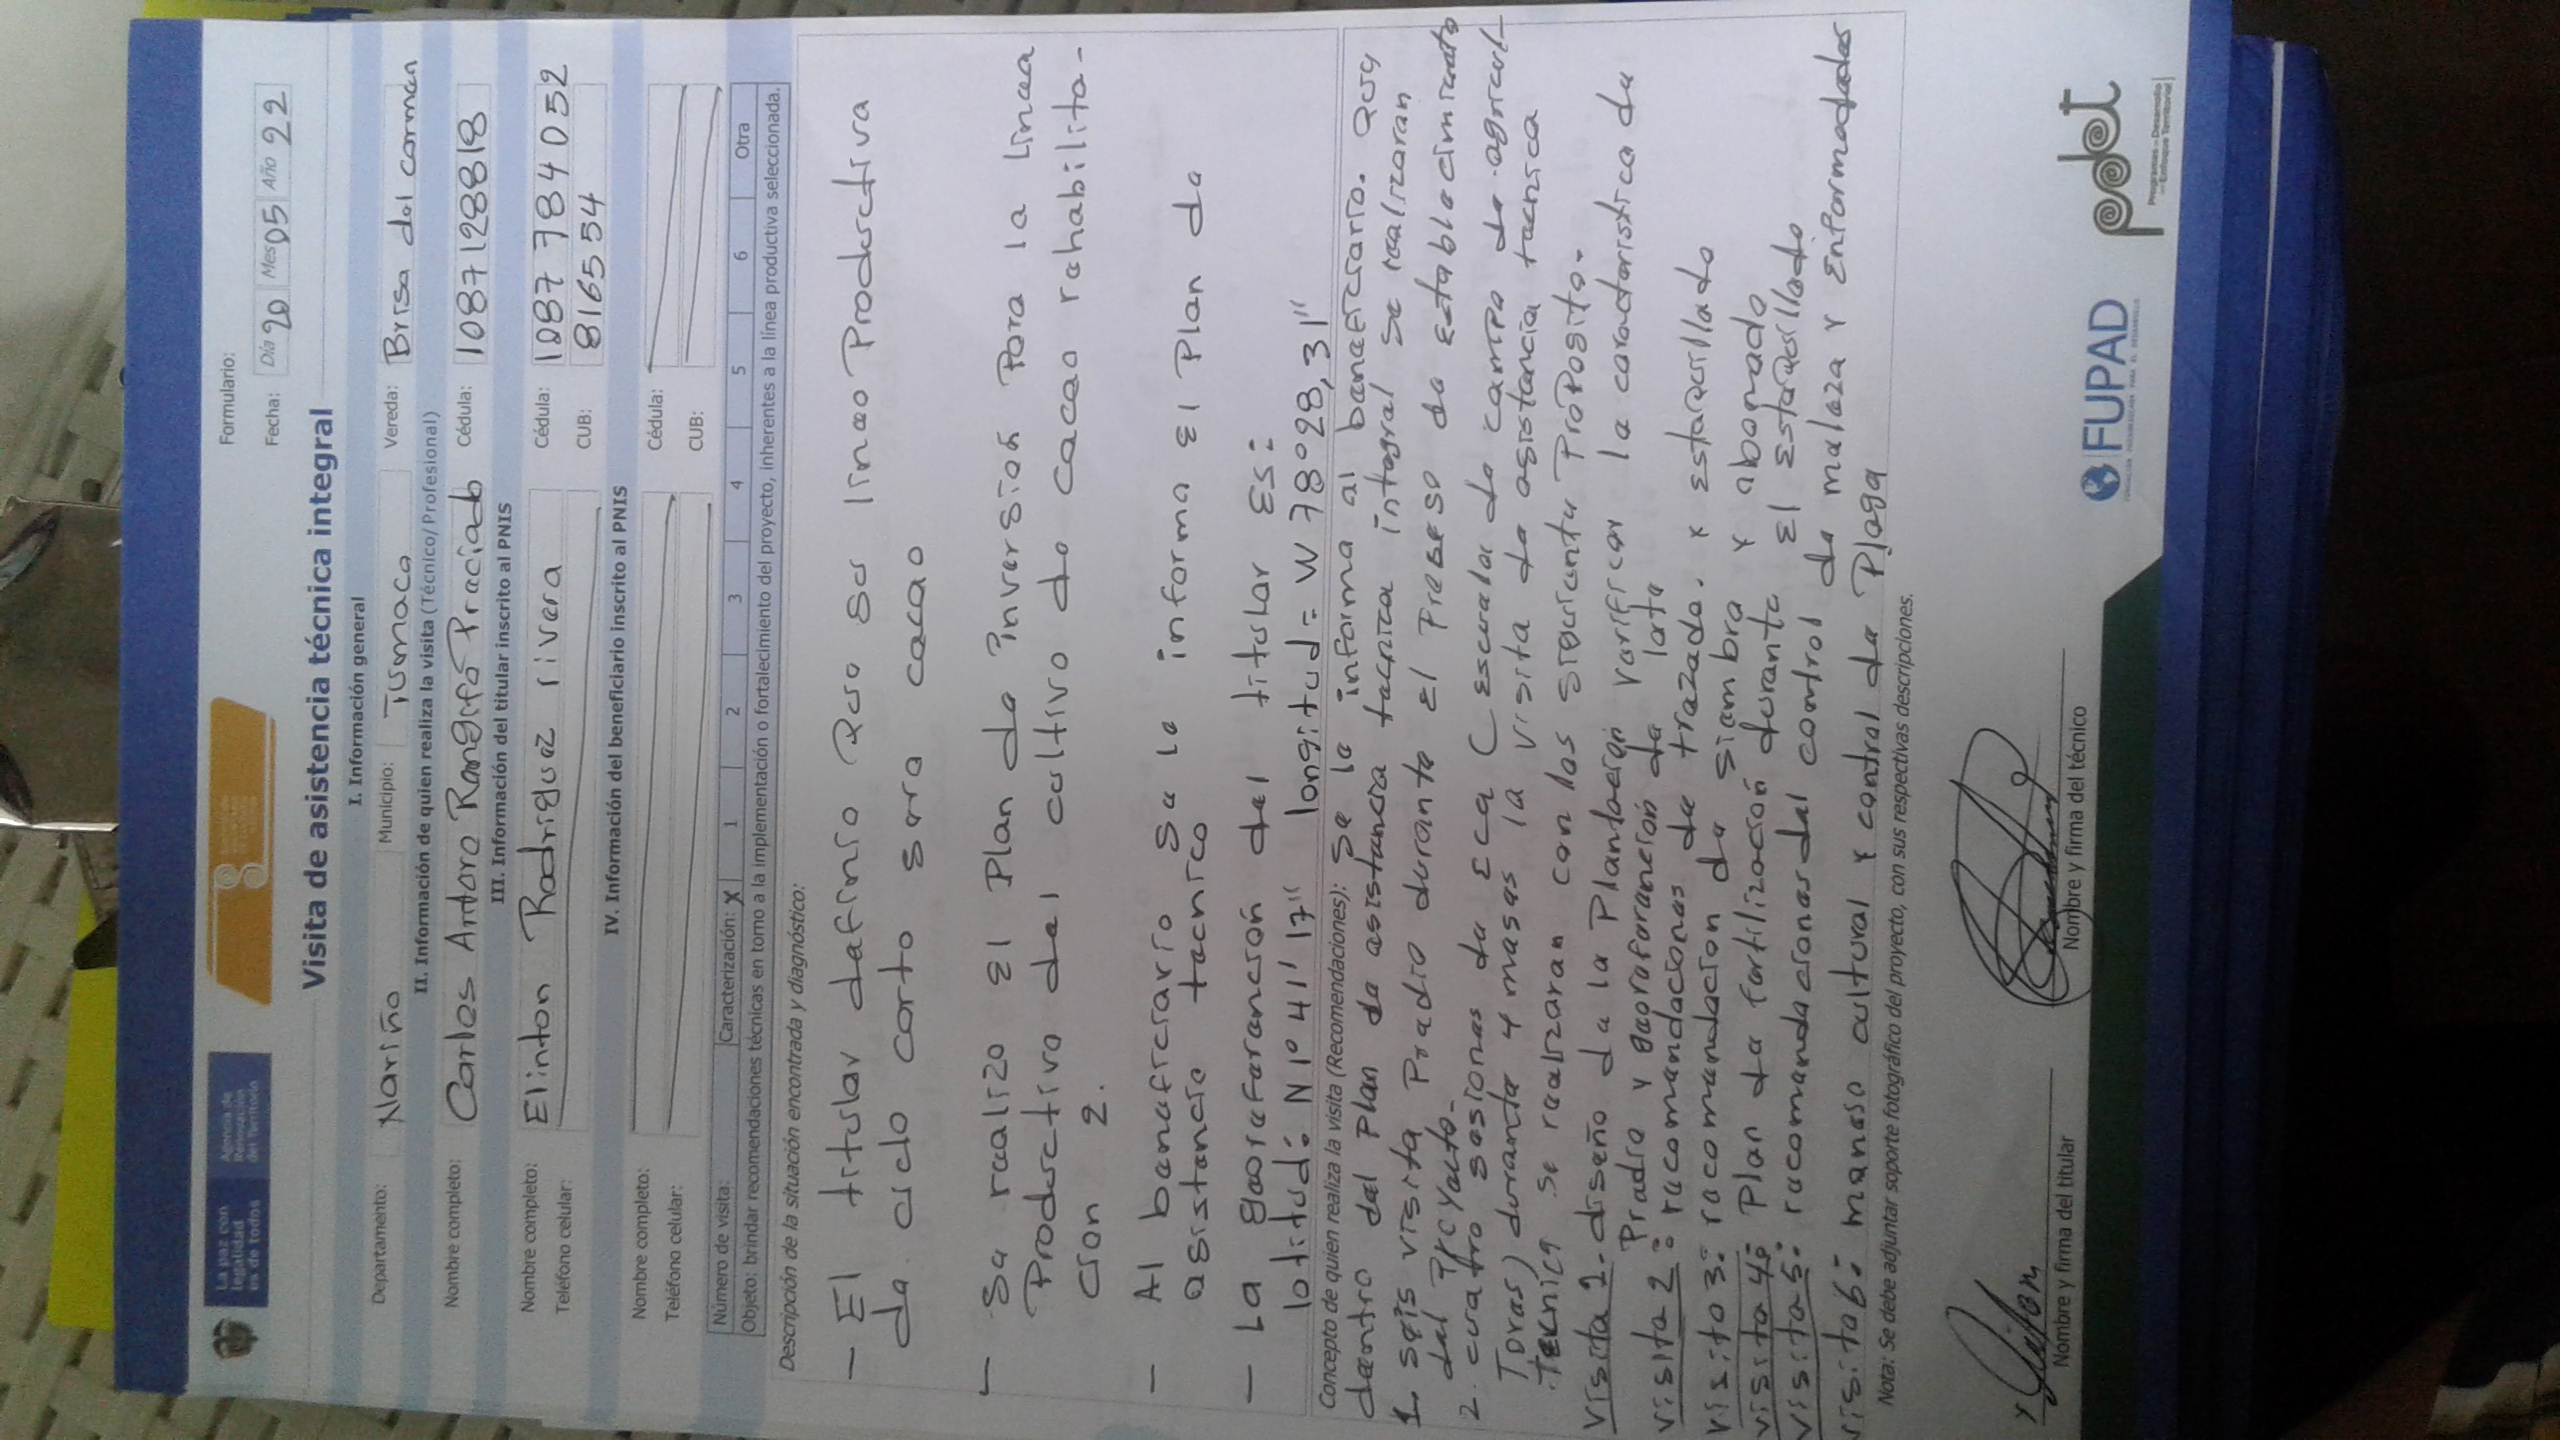 La paz con
legalidad
es de todos
Agencia de
Renovación
del Territorio
Formulario:
Fecha: Día 20 Mes 05 Año 22
Visita de asistencia técnica integral
I. Información general
Departamento: Nariño Municipio: Tumaco Vereda: Brisa del carmen
II. Información de quien realiza la visita (Técnico/Profesional)
Nombre completo: Carlos Arturo Rengifo Preciado Cédula: 1087128818
III. Información del titular inscrito al PNIS
Nombre completo: Elinton Rodriguez rivera Cédula: 1087784052
Teléfono celular: CUB: 8165554
IV. Información del beneficiario inscrito al PNIS
Nombre completo: Cédula:
Teléfono celular: CUB:
Número de visita: Caracterización: X 1 2 3 4 5 6 Otra
Objeto: brindar recomendaciones técnicas en torno a la implementación o fortalecimiento del proyecto, inherentes a la línea productiva seleccionada.
Descripción de la situación encontrada y diagnóstico:
- El titular definio que su linea Productiva
de ciclo corto sera cacao
- Se realizo el Plan de inversion Para la linea
Productiva del cultivo de cacao rehabilita-
cion 2.
- Al beneficiario se le informa el Plan de
asistencia tecnico
- La georeferencion del titular Es:
latitud: N 1° 41' 17" longitud= W 78° 28, 31"
Concepto de quien realiza la visita (Recomendaciones): se le informa al beneficiario. que
dentro del plan de asistencia tecnica integral se realizaran
1. seis visita Predio durante el Preseso de establecimiento
del Proyecto.
2. cuatro sesiones de ECA (escuelas de campo de agricul-
tores) durante 4 meses la visita de asistencia tecnica
tecnica se realizaran con los siguiente Proposito.
Visita 1. diseño de la Plantacion verificar la caracteristica de
Predio y georeferancion de lote
visita 2: recomendaciones de trazado. y estaquillado
visita 3: recomendacion de siembra y abonado
visita 4: Plan de fertilización durante El estaquillado
visita 5: recomendaciones del control de maleza y Enformedades
visita 6: manejo cultural y control de Plaga
Nota: Se debe adjuntar soporte fotográfico del proyecto, con sus respectivas descripciones.
Nombre y firma del titular
Nombre y firma del técnico
FUPAD
pdet
Programas de Desarrollo
con Enfoque Territorial